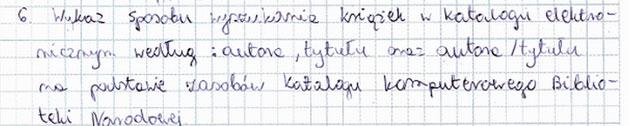 6. Wykaz sposobu wyszukiwania książek w katalogu elektro-
nicznym według: autora, tytułu oraz autora/tytułu
na podstawie zasobów katalogu komputerowego Biblio-
teki Narodowej